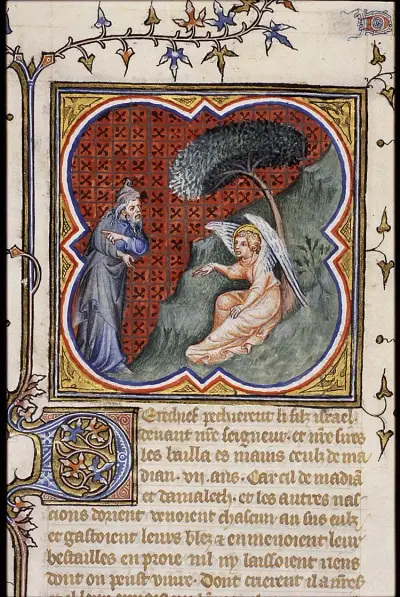 DErechief pechierent li filz israel
devant nre seigneur. et nre sires
les bailla es mains ceulz de ma
dian. vii. ans. Car cil de madiā
et damaleth. et les autres nas
cions dorient venoient chascun an sus eulz
et gastoient leurs blez et enmenoient leur
bestailles en proie nil ny laissoient riens
dont on peust vivre. Dont crierent il a nre